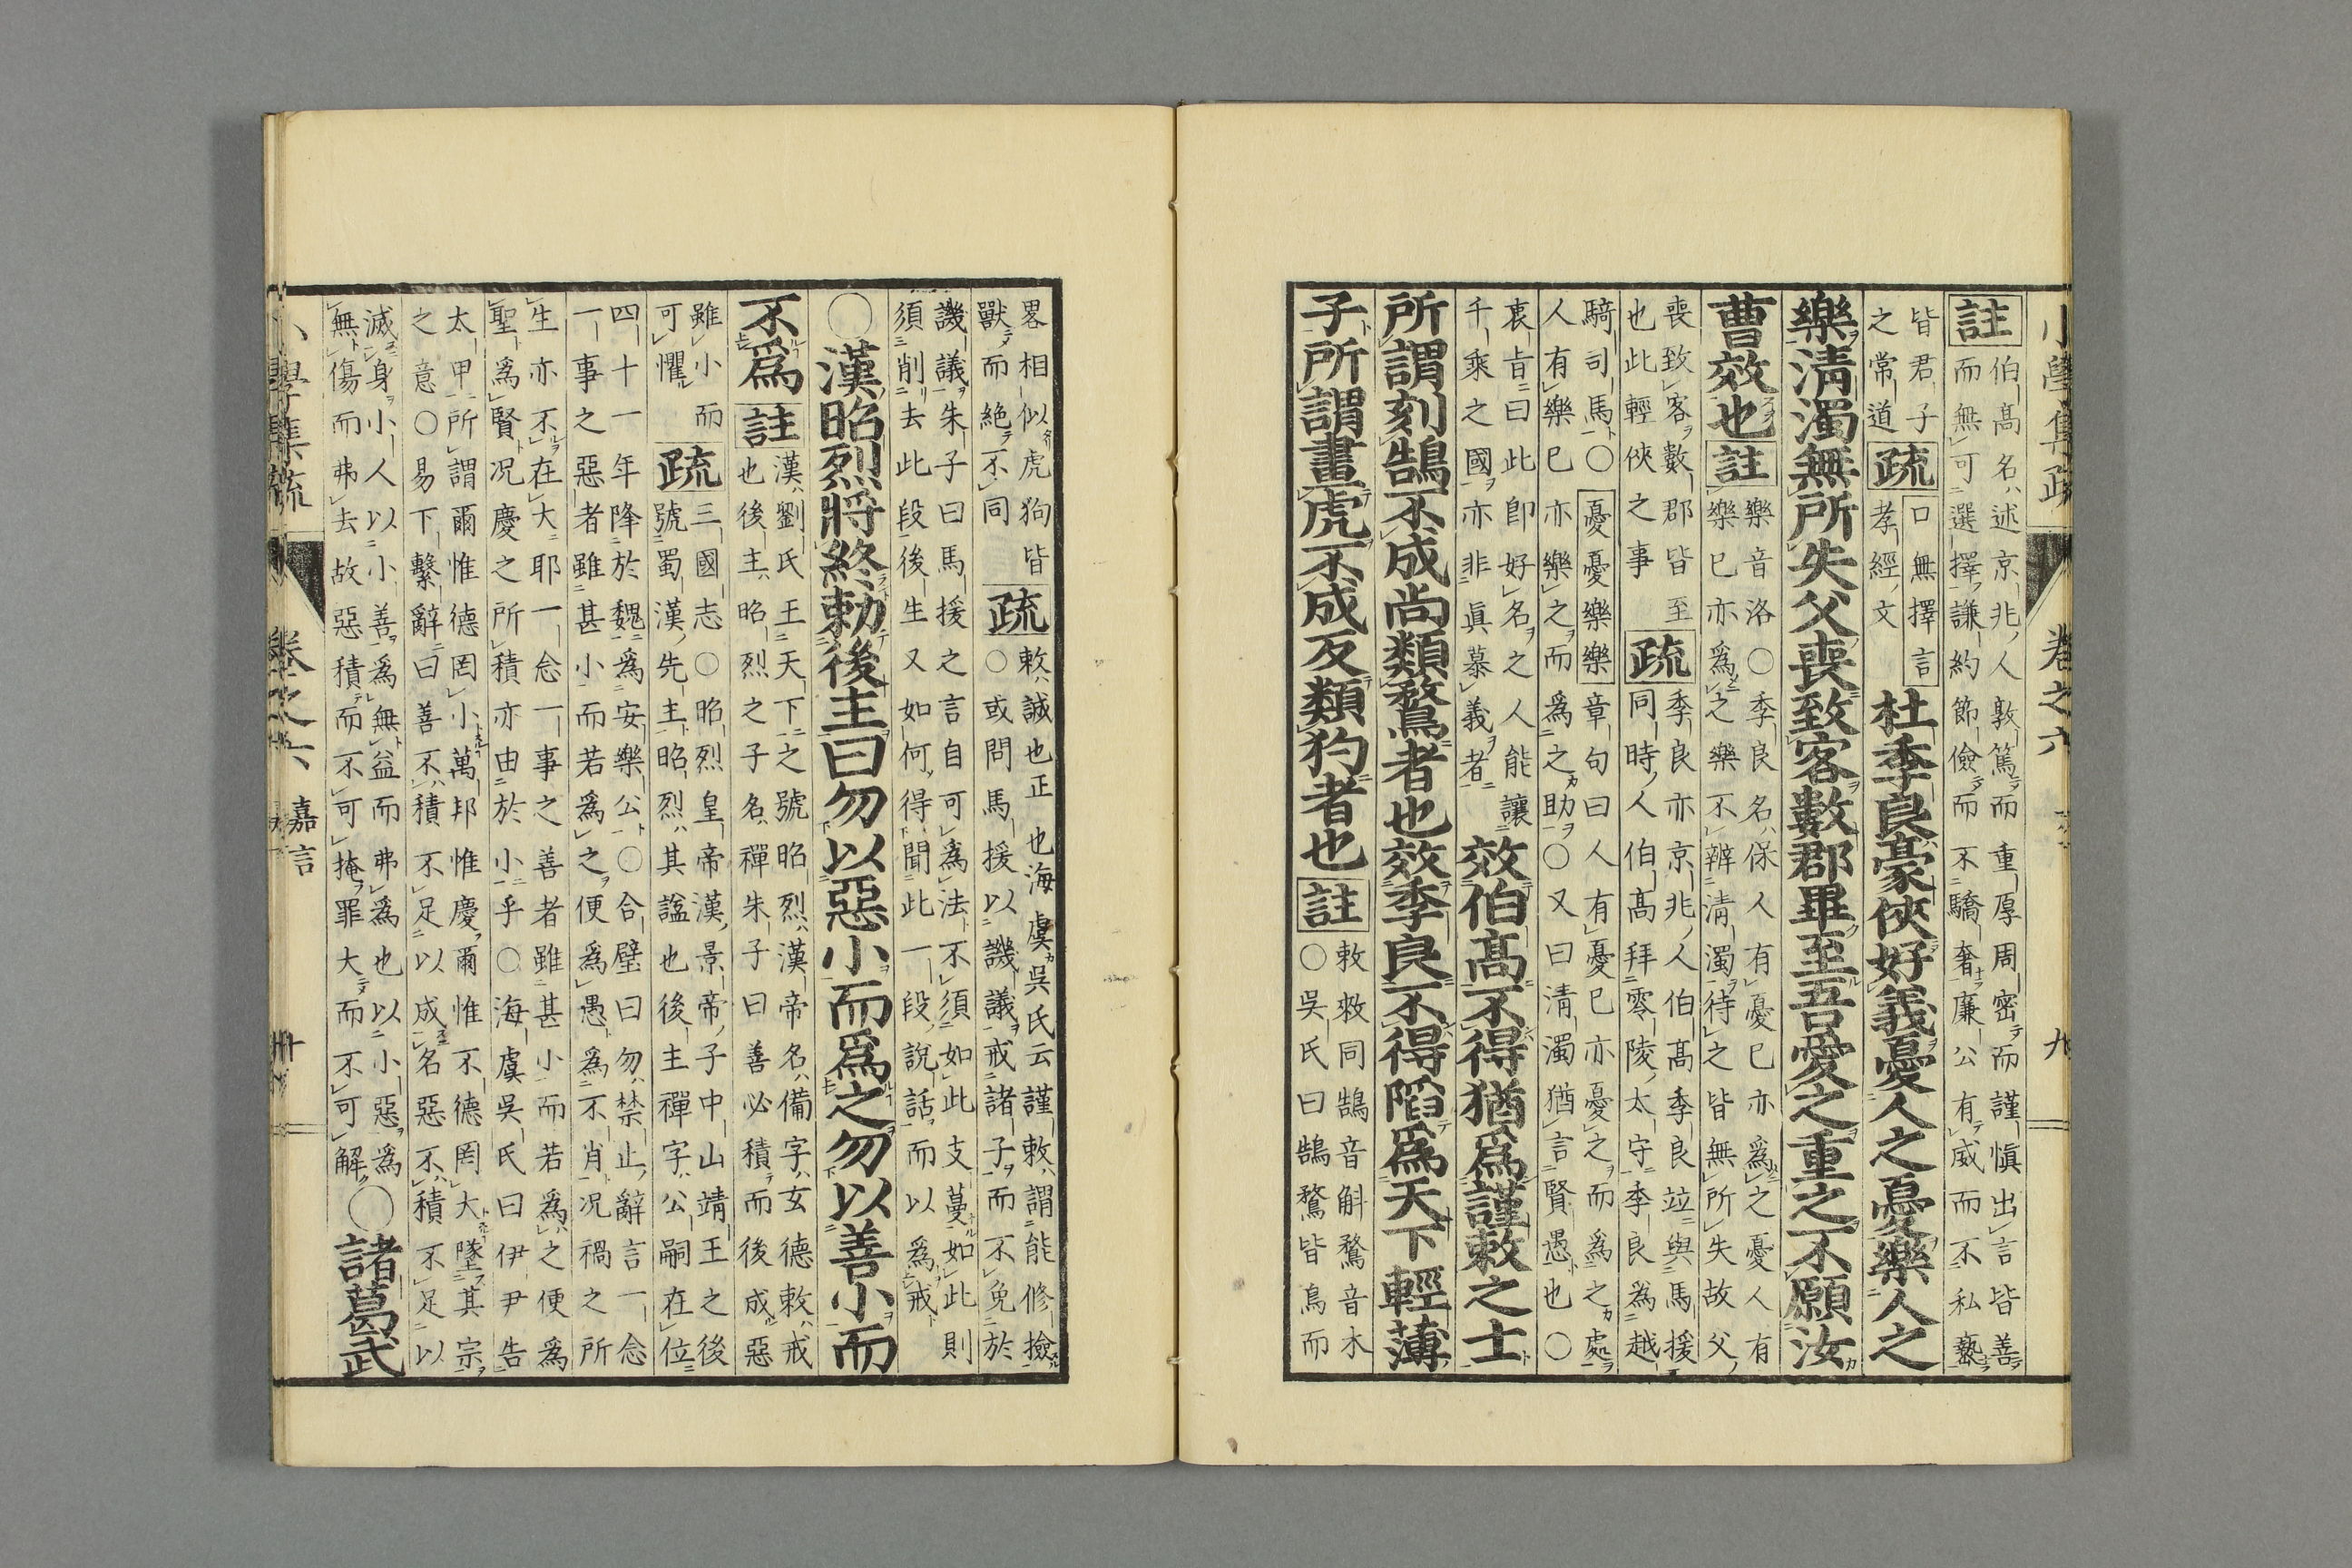 小學集疏 卷之六 九
註 伯髙名述京兆人敦篤而重厚周密而謹愼出言皆善
而無可選擇謙約節儉而不驕奢廉公有威而不私褻
皆君子
之常道
疏 口無擇言
孝經文
杜季良豪俠好義憂人之憂樂人之
樂淸濁無所失父喪致客數郡畢至吾愛之重之不願汝
曹效也 註 樂音洛○季良名保人有憂已亦爲之憂人有
樂已亦爲之樂不辨淸濁待之皆無所失故父
喪致客數郡皆至
也此輕俠之事
疏 季良亦京兆人伯髙季良竝與馬援
同時人伯髙拜零陵太守季良爲越
騎司馬○憂憂樂樂章句曰人有憂已亦憂之而爲之處
人有樂已亦樂之而爲之助○又曰淸濁猶言賢愚也○
衷旨曰此卽好名之人能讓
千乘之國亦非眞慕義者
效伯髙不得猶爲謹敕之士
所謂刻鵠不成尚類鶩者也效季良不得陷爲天下輕薄
子所謂畫虎不成反類狗者也 註 敕敇同鵠音斛鶩音木
○吳氏曰鵠鶩皆鳥而
畧相似虎狗皆
獸而絶不同
疏 敕誡也正也海虞吳氏云謹敕謂能修撿
○或問馬援以譏議戒諸子而不免於
譏議朱子曰馬援之言自可爲法不須如此支蔓如此則
須削去此段後生又如何得聞此一段說話而以爲戒
○漢昭烈將終勅後主曰勿以惡小而爲之勿以善小而
不爲 註 漢劉氏王天下之號昭烈漢帝名備字玄德敕戒
也後主昭烈之子名禪朱子曰善必積而後成惡
雖小而
可懼
疏 三國志○昭烈皇帝漢景帝子中山靖王之後
號蜀漢先主昭烈其諡也後主禪字公嗣在位
四十一年降於魏爲安樂公○合璧曰勿禁止辭言一念
一事之惡者雖甚小而若爲之便爲愚爲不肖况禍之所
生亦不在大耶一念一事之善者雖甚小而若爲之便爲
聖爲賢况慶之所積亦由於小乎○海虞吳氏曰伊尹告
太甲所謂爾惟德罔小萬邦惟慶爾惟不德罔大墜其宗
之意○易下繫辭曰善不積不足以成名惡不積不足以
滅身小人以小善爲無益而弗爲也以小惡爲
無傷而弗去故惡積而不可掩罪大而不可解
○諸葛武
小學集疏 卷之六 嘉言